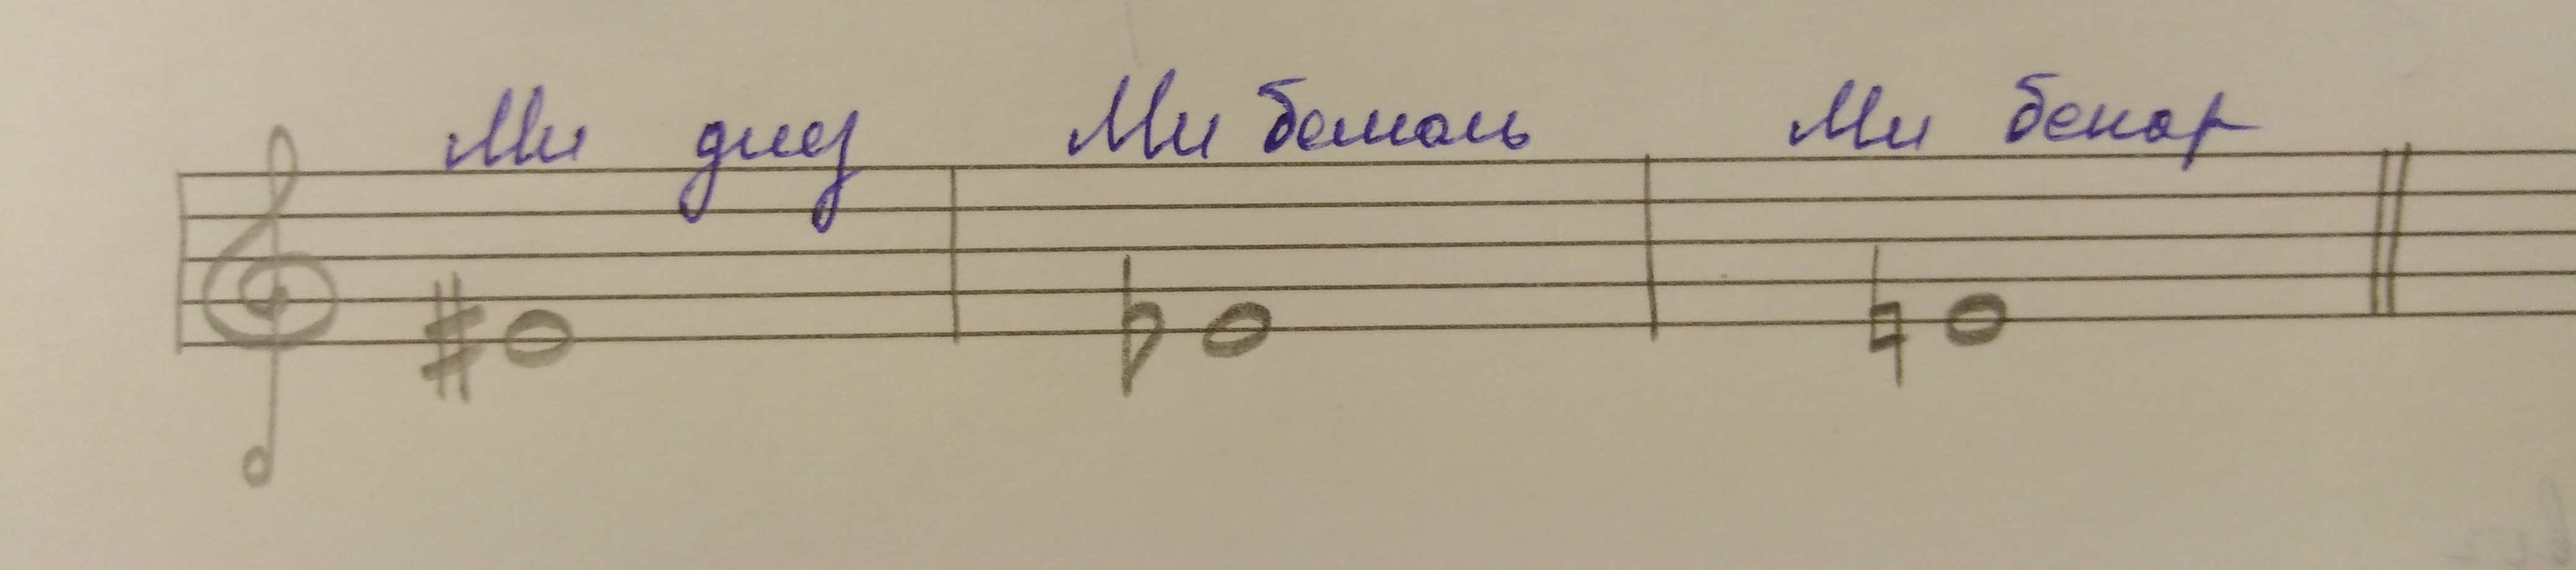 Ми диез Ми бемоль Ми бекар